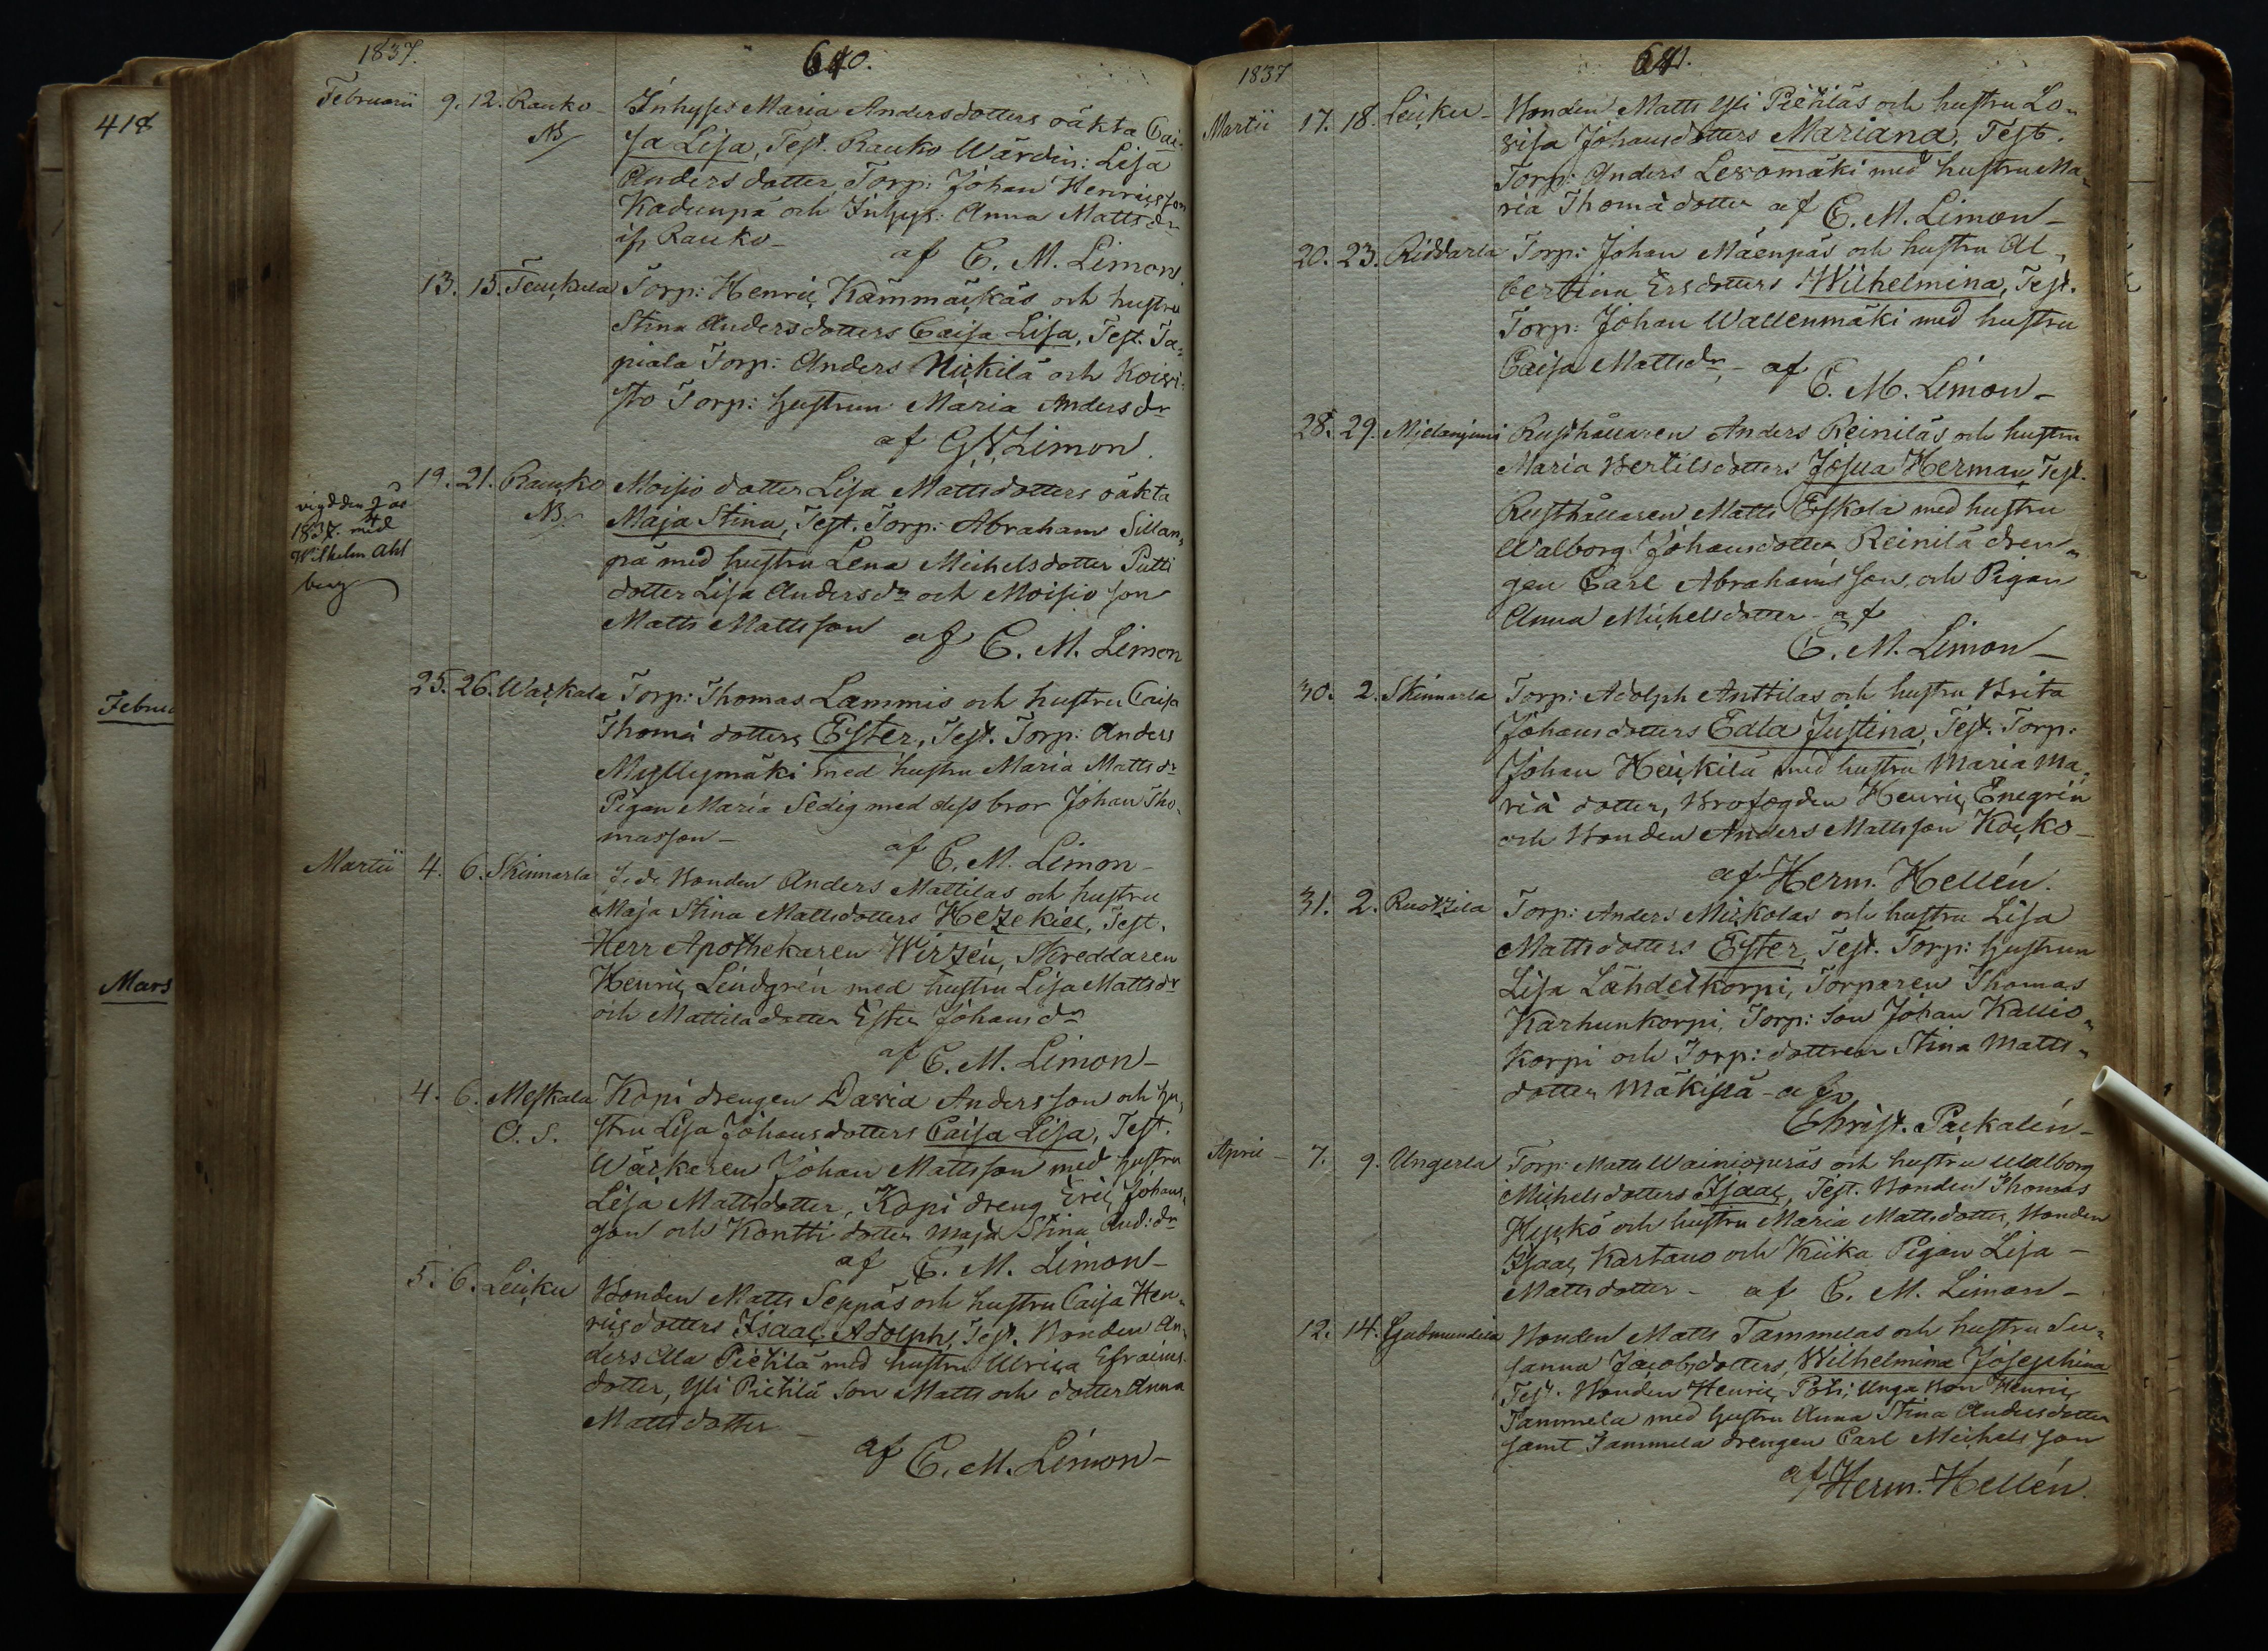 418
Februa
Mars
1837.
640.
Februarii 9. 12. Rauko Inhyses Maria Andersdotters oäkta Cai-
NB sa Lisa, Test. Rauko Wärdin: Lisa
Anders dotter, Torp: Johan Henricsson
Kadunpä och Inhys: Anna Mattsdr
ifr Rauko af C. M. Limon.
13. 15. Teuckula Torp: Henric Kämmäckäs och hustru
Stina Andersdotters Caisa Lisa, Test. Ta-
piala Torp: Anders Nickilä och Koivi-
sto Torp: hustrun Maria Andersdr
af G N Limon.
19. 21. Raucko Moisio dotter Lisa Mattsdotters oäkta
NB. Maja Stina, Test. Torp: Abraham Sillan-
pä med hustru Lena Michelsdotter Putti
dotter Lisa Andersdr och Moisio son
Matts Mattsson af C. M. Limon
vigd den
1837. med
Wilhelm Ahl
berg
25. 26. Warkala Torp: Thomas Lammis och hustru Caisa
Thomä dotters Ester, Test. Torp: Anders
Myllymäki med hustru Maria Mattsdr
Pigan Maria Sedig med dess bror Johan Tho-
masson – af C. M. Limon –
Martii 4. 6. Skinnarla f. d. Bonden Anders Mattilas och hustru
Maja Stina Mattsdotters Hezekiel, Test.
Herr Apothekaren Wirzén, Skreddaren
Henric Lindgrén med hustru Lisa Mattsdr
och Mattila dotter Ester Johansdr
af C. M. Limon –
4. 6. Meskala Kopi drengen David Andersson och hu-
O. S. stru Lisa Johansdotters Caisa Lisa, Test.
Wäckaren Johan Mattsson med hustru
Lisa Mattsdotter, Kopi dreng Eric Johans-
son och Kontti dotter Maja Stina And:dr
af C. M. Limon –
5. 6. Leicku Bonden Matts Seppäs och hustru Caisa Hen-
ricsdotters Isaac Adolph, Test. Bonden An-
ders Ala Pietilä med hustru Ulrica Efraims-
dotter, Yli Pietilä son Matts och dotter Anna
Mattsdotter –
af C. M. Limon –
1837
641.
Martii 17. 18. Leicku – Bonden Matts Yli Pietiläs och hustru Lo-
visa Johansdotters Mariana, Test.
Torp: Anders Levomäki med hustru Ma-
ria Thomä dotter af C. M. Limon –
20. 23. Riddarla Torp: Johan Mäenpäs och hustru Al-
bertina Ersdotters Wilhelmina, Test.
Torp: Johan Wallenmäki med hustru
Caisa Mattsdr – af
C. M. Limon –
28. 29. Mjelanjemi Rusthållaren Anders Reiniläs och hustru
Maria Bertilsdotters Josua Herman, Test.
Rusthållaren Matts Eskola med hustru
Walborg Johansdotter Reinilä dren-
gen Carl Abrahamsson och Pigan
Anna Michelsdotter – af
C. M. Limon –
30. 2. Skinnarla Torp: Adolph Anttilas och hustru Brita
Johansdotters Edla Justina, Test. Torp:
Johan Heickilä med hustru Maria Ma-
riä dotter, Brofogden Henric Enegrén
och Bonden Anders Mattsson Kocko –
af Herm. Hellén.
31. 2. Ruotzila Torp: Anders Mickolas och hustru Lisa
Mattsdotters Ester, Test. Torp: hustrun
Lisa Lähdetkorpi, Torparen Thomas
Karhunkorpi, Torp: Son Johan Kallio-
korpi och Torp: dottren Stina Matts-
dotter Mäkislä – af
Christ. Packalén –
April – 7. 9. Ungerla Torp: Matts Wainioperäs och hustru Walborg
Michelsdotters Isaac, Test. Bonden Thomas
Hyrkö och hustru Maria Mattsdotter, Bonden
Isaac Kartano och Kiika Pigan Lisa –
Mattsdotter – af C. M. Limon –
12. 14. Gudmundila Bonden Matts Tammelas och hustru Su-
sanna Jacobsdotters, Wilhelmina Josephina
Test. Bonden Henric Poti, Unga Bon Henric
Tammela med hustru Anna Stina Andersdotter
samt Tammela drengen Carl Michelsson
af Herm. Hellén.